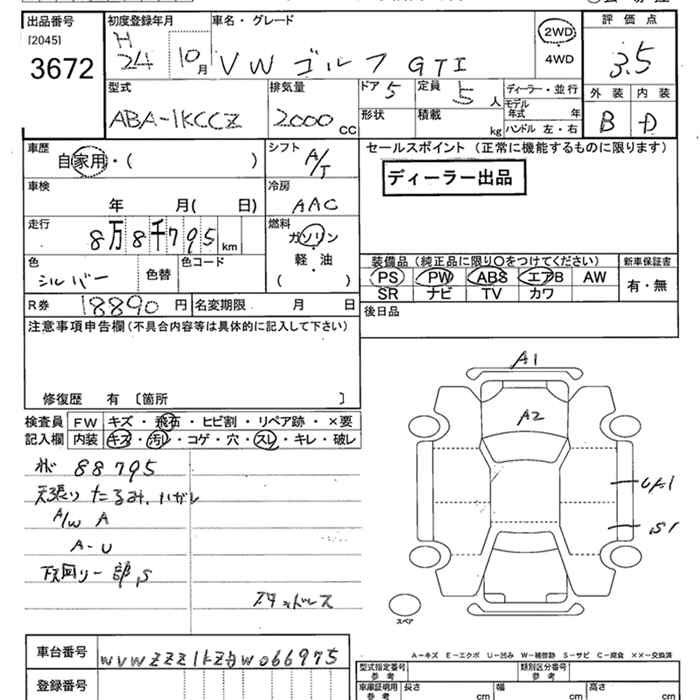 出品番号 初度登録年月 車名・グレード 2WD 評価点
[2045] H
3672 24 10月 VW ゴルフ GTI 4WD 3.5
型式 排気量 ドア 5 定員 5人 ディーラー・並行 外装 内装
ABA-1KCCZ 2000 CC 形状 積載 kg モデル年式 年 B D
ハンドル 左・右
車歴 シフト セールスポイント (正常に機能するものに限ります)
自家用・( ) A/T ディーラー出品
車検 冷房
年 月( 日) AAC
走行 燃料
8万8千795 km ガソリン
軽・油
( )
色 色替 色コード
シルバー
装備品 (純正品に限り○をつけてください) 新車保証書
PS PW ABS エアB AW 有・無
SR ナビ TV カワ
R券 18890 円 名変期限 月 日 後日品
注意事項申告欄 (不具合内容等は具体的に記入して下さい)
修復歴 有 〔箇所 〕
検査員 FW キズ・飛石・ヒビ割・リペア跡・×要
記入欄 内装 キズ・汚レ・コゲ・穴・スレ・キレ・破レ
88795
天張り たるみ、ハガレ
A/W A
A-U
下廻り一部S
スタッドレス
A1
A2
UA1
S1
スペア
A-キズ E-エクボ U-凹み W-補修跡 S-サビ C-腐食 ××-交換済
車台番号 WVWZZZ1KZ
登録番号
型式指定番号 参考 類別区分番号 参考
車庫証明用 参考 長さ cm 幅 cm 高さ cm